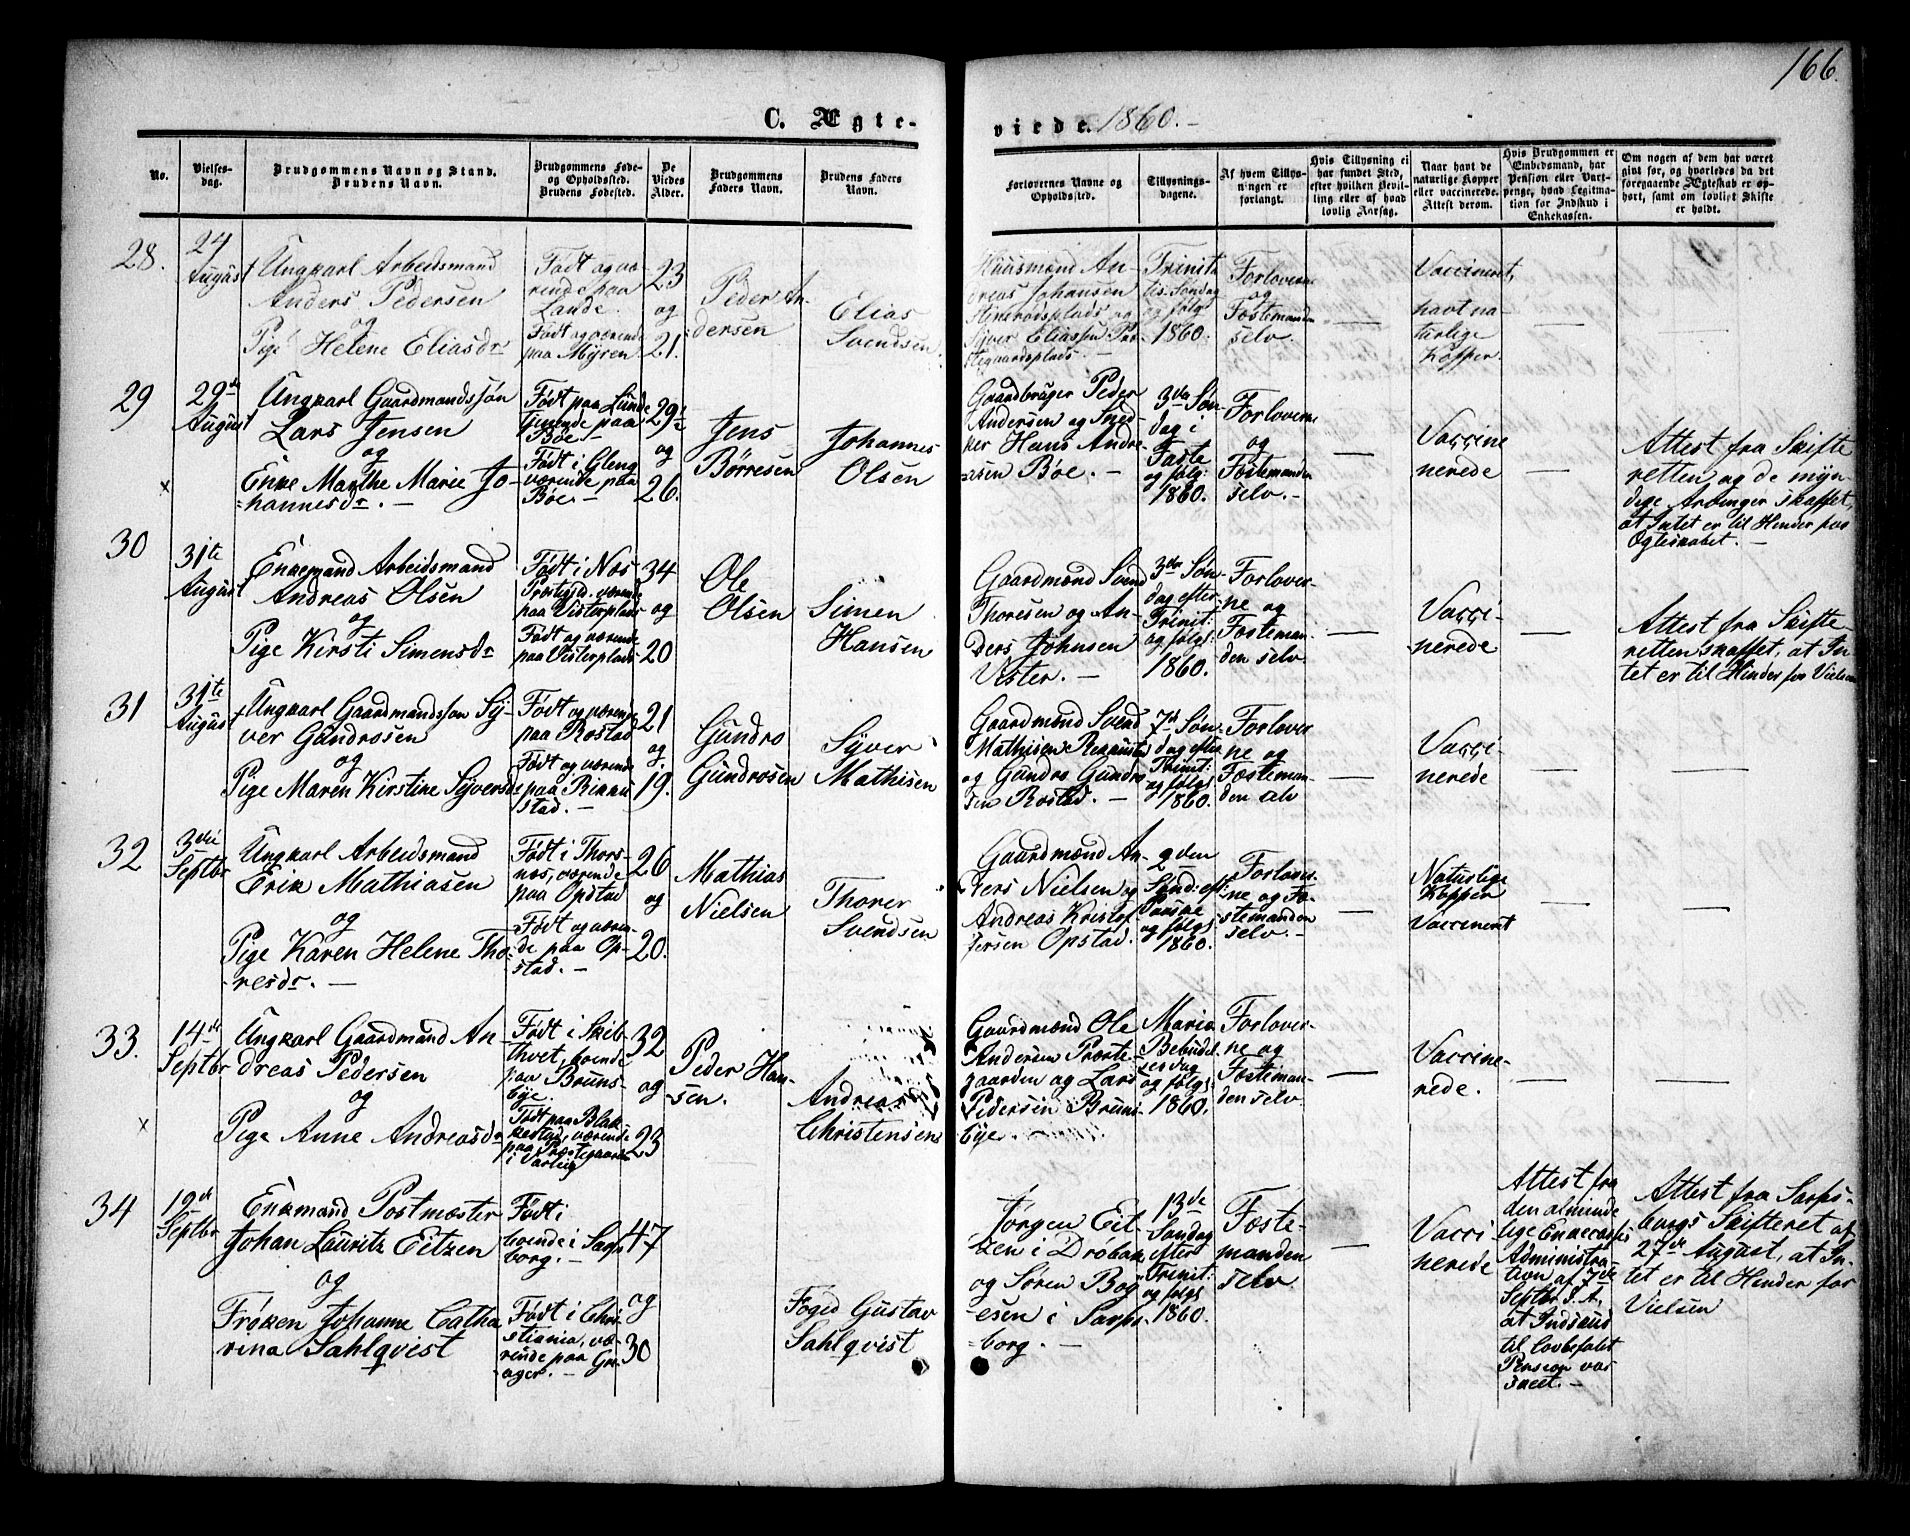 166.
C. Ægte-
viede. 1860.-
No.
Vielses-
dag.
Brudgommens Navn og Stand.
Brudens Navn.
Brudgommens Føde-
og Opholdsted.
Brudens Fødested.
De
Viedes
Alder.
Brudgommens
Faders Navn.
Brudens Faders
Navn.
Forlovernes Navne og
Opholdsted.
Tillysnings-
dagene.
Af hvem Tillys-
ningen er
forlangt.
Hvis Tillysning ei
har fundet Sted,
efter hvilken Bevil-
ling eller af hvad
lovlig Aarsag.
Naar havt de
naturlige Kopper
eller vaccinerede.
Attest derom.
Hvis Brudgommen er
Embedsmand, har
Pension eller Vart-
penge, hvad Legitima-
tion for Indskud i
Enkekassen.
Om nogen af dem har været
gift før, og hvorledes da det
foregaaende Ægteskab er op-
hørt, samt om lovligt Skifte
er holdt.
28.
24
August
Ungkarl Arbeidsmand
Anders Pedersen
og
Pige Helene Eliasdr
Født og væ-
rende paa
Lande.
Født og værende
paa Myren
23
og
21.
Peder An-
dersen
Elias
Svendsen.
Huusmænd An-
dreas Johansen
og
Syver Eliassen Præ-
stegaardsplads. -
Trinita
tis Søndag
og følg
1860.
Forloverne
og
Fæstemanden
selv.
—
Vaccineret,
havt na-
turlige
Kopper.
—
—
29
29de
August
Ungkarl Gaardmandssøn
Lars Jensen
og
Enke Marthe Marie Jo-
=hannesdr. -
Født paa Lunde
tjenende paa
Bøe -
Født i Gleng
værende paa
Bøe -
29½
og
26.
Jens
Børresen
Johannes
Olsen
Gaardbruger Peder
Andersen og Sned-
ker Hans Andre
=sen Bøe. -
3die Søn-
dag i
Faste
og følg:
1860.
Forloverne
og
Fæstemanden
selv. -
—
Vaccine
nerede
—
Attest fra Skifte
retten og de myn-
dige Arvinger skaffet,
at Intet er til Hinder for
Ægteskabet. -
x
30
31te
August
Enkemand Arbeidsmand
Andreas Olsen
og
Pige Kirsti Simensdr
Født i Næs
Præstegjd. værende
paa Visterplads
Født og værende
paa Visterplads
34
og
20
Ole
Olsen
Simen
Hansen
Gaardmænd Svend
Thoresen og An-
ders Johnsen
Vister. -
3die Søn-
dag efter
Trinit:
og følg:
1860.
Forlover-
ne og
Fæsteman-
den selv
—
Vacci-
nerede
—
Attest fra Skifte-
retten skaffet, at In-
tet er til Hinder for Vielsen
31
31te
August
Ungkarl Gaardmandssøn Sy-
ver Gundrosen
og
Pige Maren Kirstine Syversdr
Født og værende
paa Rostad
Født og værende
paa Rikku
stad. -
21
og
19.
Gundro
Gundrosen
Syver
Mathisen
Gaardmænd Svend
Mathisen
og Gundro Gundro
sen Rostad. -
7de Søn-
dag efter
Trinit:
og følg:
1860.
Forlover
ne og
Fæsteman-
den selv
—
Vacci-
nerede
—
—
32
3die
Septbr
Ungkarl Arbeidsmand
Erik Mathiasen
og
Pige Karen Helene Tho-
-resdr. -
Født i Thors-
næs, værende
paa Opstad
Født og væren-
de paa Op-
stad. -
26
og
20.
Mathias
Nielsen
Thorer
Svendsen
Gaardmænd An-
ders Nielsen og
Andreas Kristof
fersen Opstad.
2den
Sønd: eft:
Paaske
og følg:
1860.
Forlover-
ne og Fæ-
stemanden
selv. -
—
Naturlige
Kopper
Vaccineret
—
—
33.
14de
Septbr
Ungkarl Gaardmand An-
dreas Pedersen
og
Pige Anne Andreasdr
Født i Skib-
thvet, boende
paa Bruns-
bye.
Født paa Blak-
kestad, værende
paa Præstegaarden
i Varteig
32
og
23
Peder Han-
sen.
Andreas
Christensen
Gaardmænd Ole
Andersen Præste-
gaarden og Lars
Pedersen Bruns-
bye. -
Mariæ
Bebudel-
sesdag
og følg:
1860.
Forlover-
ne og
Fæsteman-
den selv
—
Vaccine-
rede.
—
—
x
34
19de
Septbr
Enkemand Postmester
Johan Lauritz Eitzen
og
Frøken Johanne Catha
rina Sahlqvist
Født i
boende i Sarps
borg. -
Født i Chri-
stiania, væ-
rende paa Gre-
ager. -
47
og
30
Foged Gustav
Sahlqvist
Jørgen Eit-
zen i Drøbak
og Søren Bog
=esen i Sarps-
borg. -
13de
Søndag
efter
Trinit:
og følg:
1860.
Fæste-
manden
selv.
—
Vacci
nerede
Attest fra
den alminde
lige Enkecasses
Administra
tion af 7de
Septbr d. A,
at Indskud
til lovbefalet
Pension var
skeet. -
Attest fra Sarps-
borgs Skifteret af
27de August, at In-
tet er til Hinder for
Vielsen